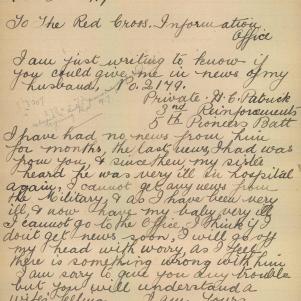 To The Red Cross. Information
Office
I am just writing to know if
you could give me in news of my
husband, No. 2179.
Private H. C. Patrick
3rd Reinforcements
5th Pioneers Batt
I have had no news from him
for months, the last news I had was
from you, & since then my sister
heard he was very ill in hospital
again, I cannot get any news from
the Military, & as I have been very
ill, & now I have my baby very ill
I cannot go to the Office, I think if I
dont get news soon, I will go off
my head with worry, as I feel
there is something wrong with him
I am sorry to give you any trouble
but you will understand a
wifes feeling I am Yours